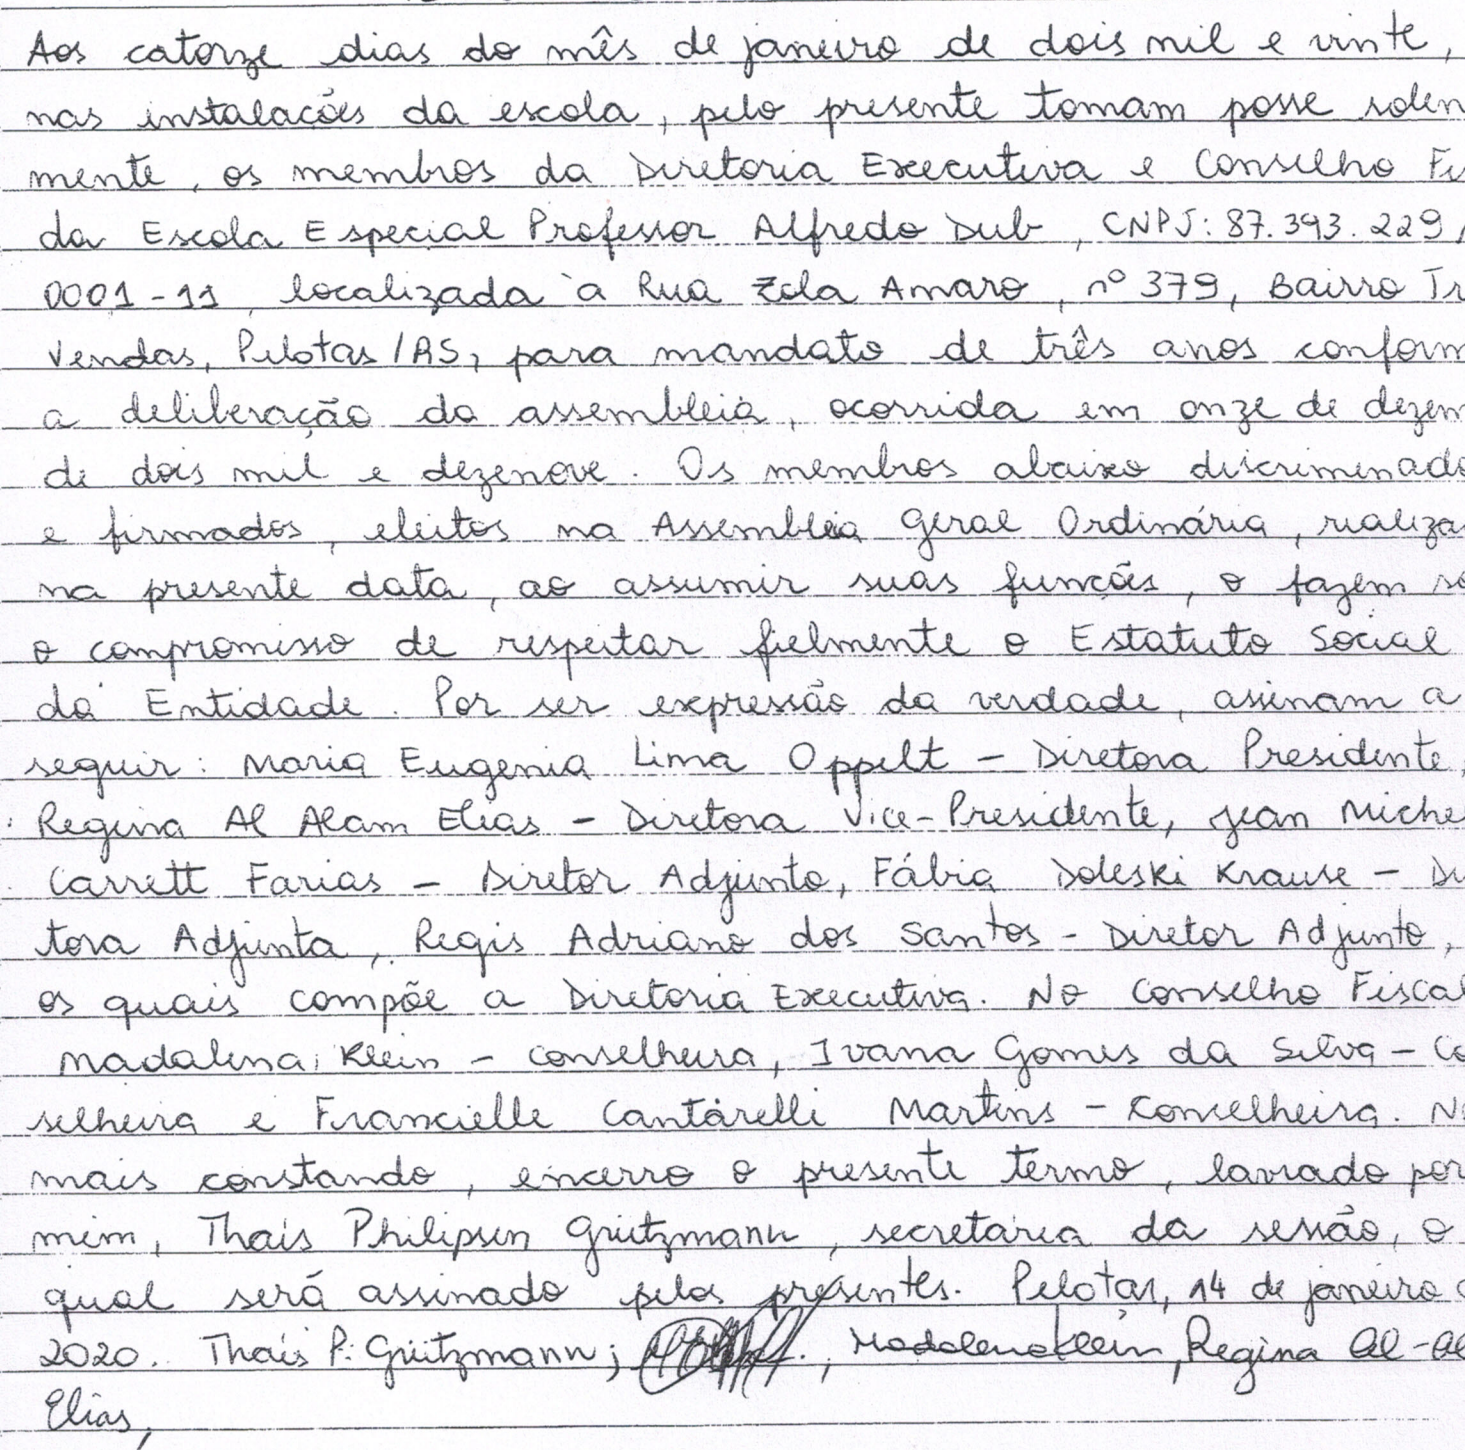 Aos catorze dias do mês de janeiro de dois mil e vinte,
nas instalacões da escola, pelo presente tomam posse solen
mente, os membros da Diretoria Executiva e Conselho Fis
da Escola Especial Professor Alfredo Dub, CNPJ: 87.393.229/
0001-11, localizada à Rua Zola Amaro, nº 379, Bairro Tr
Vendas, Pelotas/RS, para mandato de três anos conform
a deliberação da assembleia, ocorrida em onze de dezem
de dois mil e dezenove. Os membros abaixo discriminado
e firmados, eleitos na Assembleia Geral Ordinária, realiza
na presente data, ao assumir suas funcões, o fazem so
o compromisso de respeitar fielmente o Estatuto Social
da Entidade. Por ser expressão da verdade, assinam a
seguir: Maria Eugenia Lima Oppelt - Diretora Presidente,
Regina Al Alam Elias - Diretora Vice-Presidente, Jean Miche
Carrett Farias - Diretor Adjunto, Fábia Doleski Krause - Di
tora Adjunta, Regis Adriano dos Santos - Diretor Adjunto,
os quais compõe a Diretoria Executiva. No Conselho Fiscal
Madalena Klein - conselheira, Ivana Gomes da Silva - Co
selheira e Francielle Cantarelli Martins - Konselheira. N
mais constando, encerro o presente termo, lavrado por
mim, Thais Philipsen Grützmann, secretaria da sessão, o
qual será assinado pelos presentes. Pelotas, 14 de janeiro d
2020. Thais P. Grützmann; , Madalena Klein, Regina Al-Al
Elias,